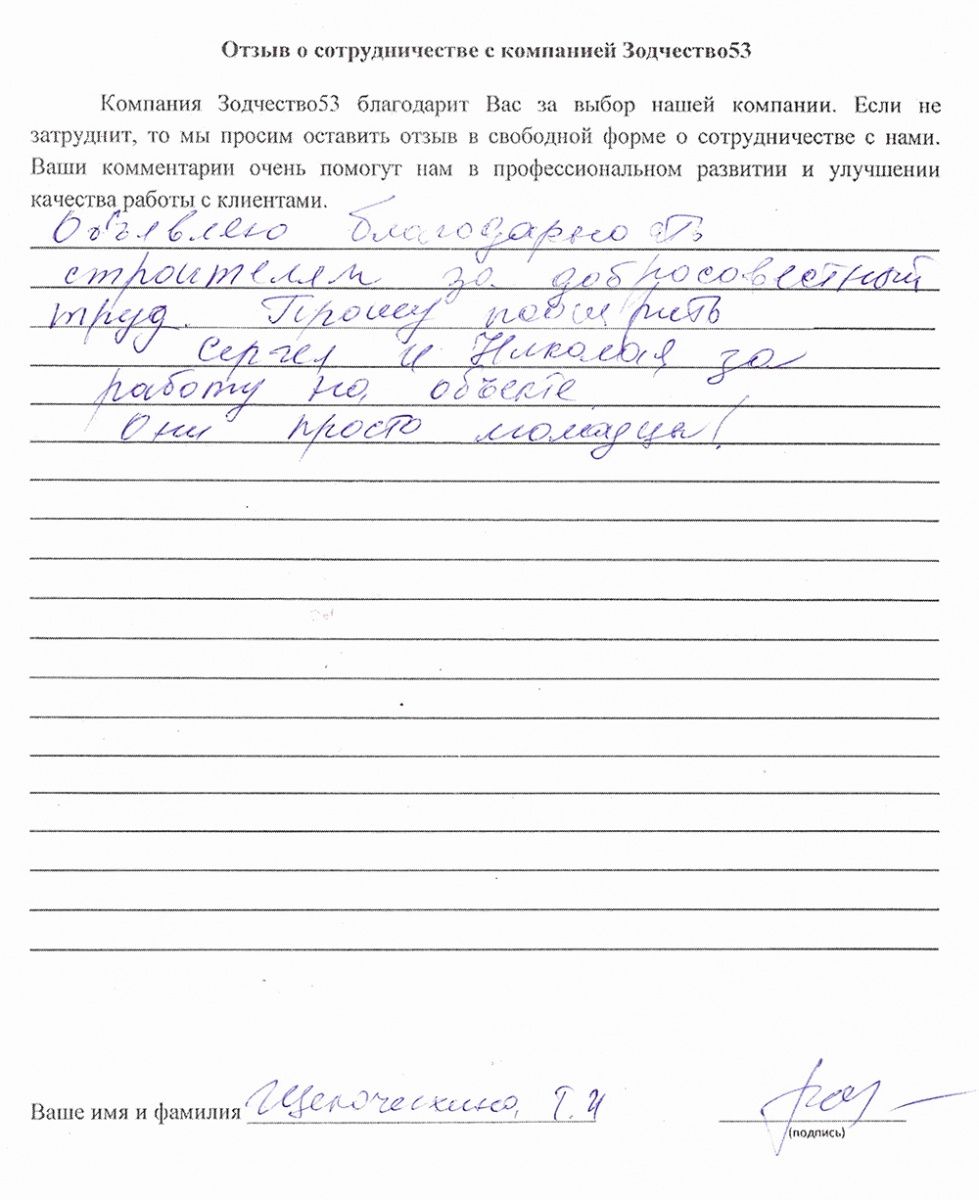 Отзыв о сотрудничестве с компанией Зодчество53
Компания Зодчество53 благодарит Вас за выбор нашей компании. Если не
затруднит, то мы просим оставить отзыв в свободной форме о сотрудничестве с нами.
Ваши комментарии очень помогут нам в профессиональном развитии и улучшении
качества работы с клиентами.
Объявляю благодарность
строителям за добросовестный
труд. Прошу поощрить
Сергея и Николая за
работу на объекте
Они просто молодцы!
Ваше имя и фамилия Т.И
(подпись)